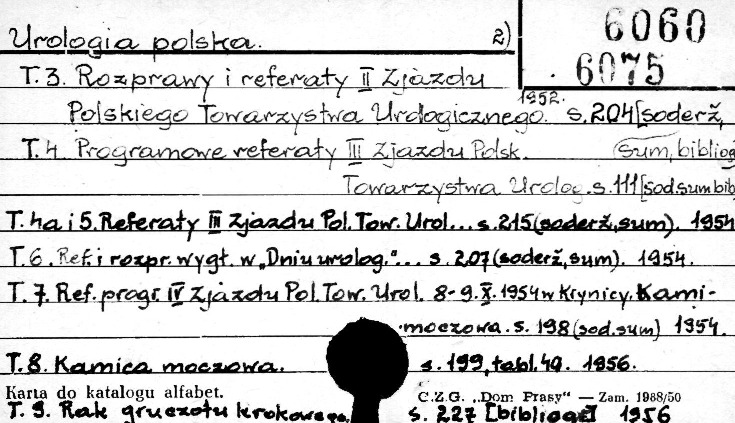 Urologia polska. 2)
6060
6075
T.3. Rozprawy i referaty II Zjazdu
Polskiego Towarzystwa Urologicznego. 1952. s.204[soderž,
sum, bibliog
T.4. Programowe referaty III Zjazdu Polsk.
Towarzystwa Urolog. s.111[sod.sum bib
T.4a i 5. Referaty III Zjazdu Pol. Tow. Urol... s.215(soderž,sum). 1954
T.6. Ref. i rozpr. wygł. w „Dniu urolog."... s.207(soderž,sum). 1954.
T.7. Ref. progr. IV Zjazdu Pol. Tow. Urol. 8-9.X.1954 w Krynicy. Kami-
moczowa. s.198(sod.sum) 1954.
T.8. Kamica moczowa. s.199,tabl.49. 1956.
Karta do katalogu alfabet. C.Z.G. „Dom Prasy" — Zam. 1988/50
T.9. Rak gruczołu krokowego. s.227[bibliogr] 1956